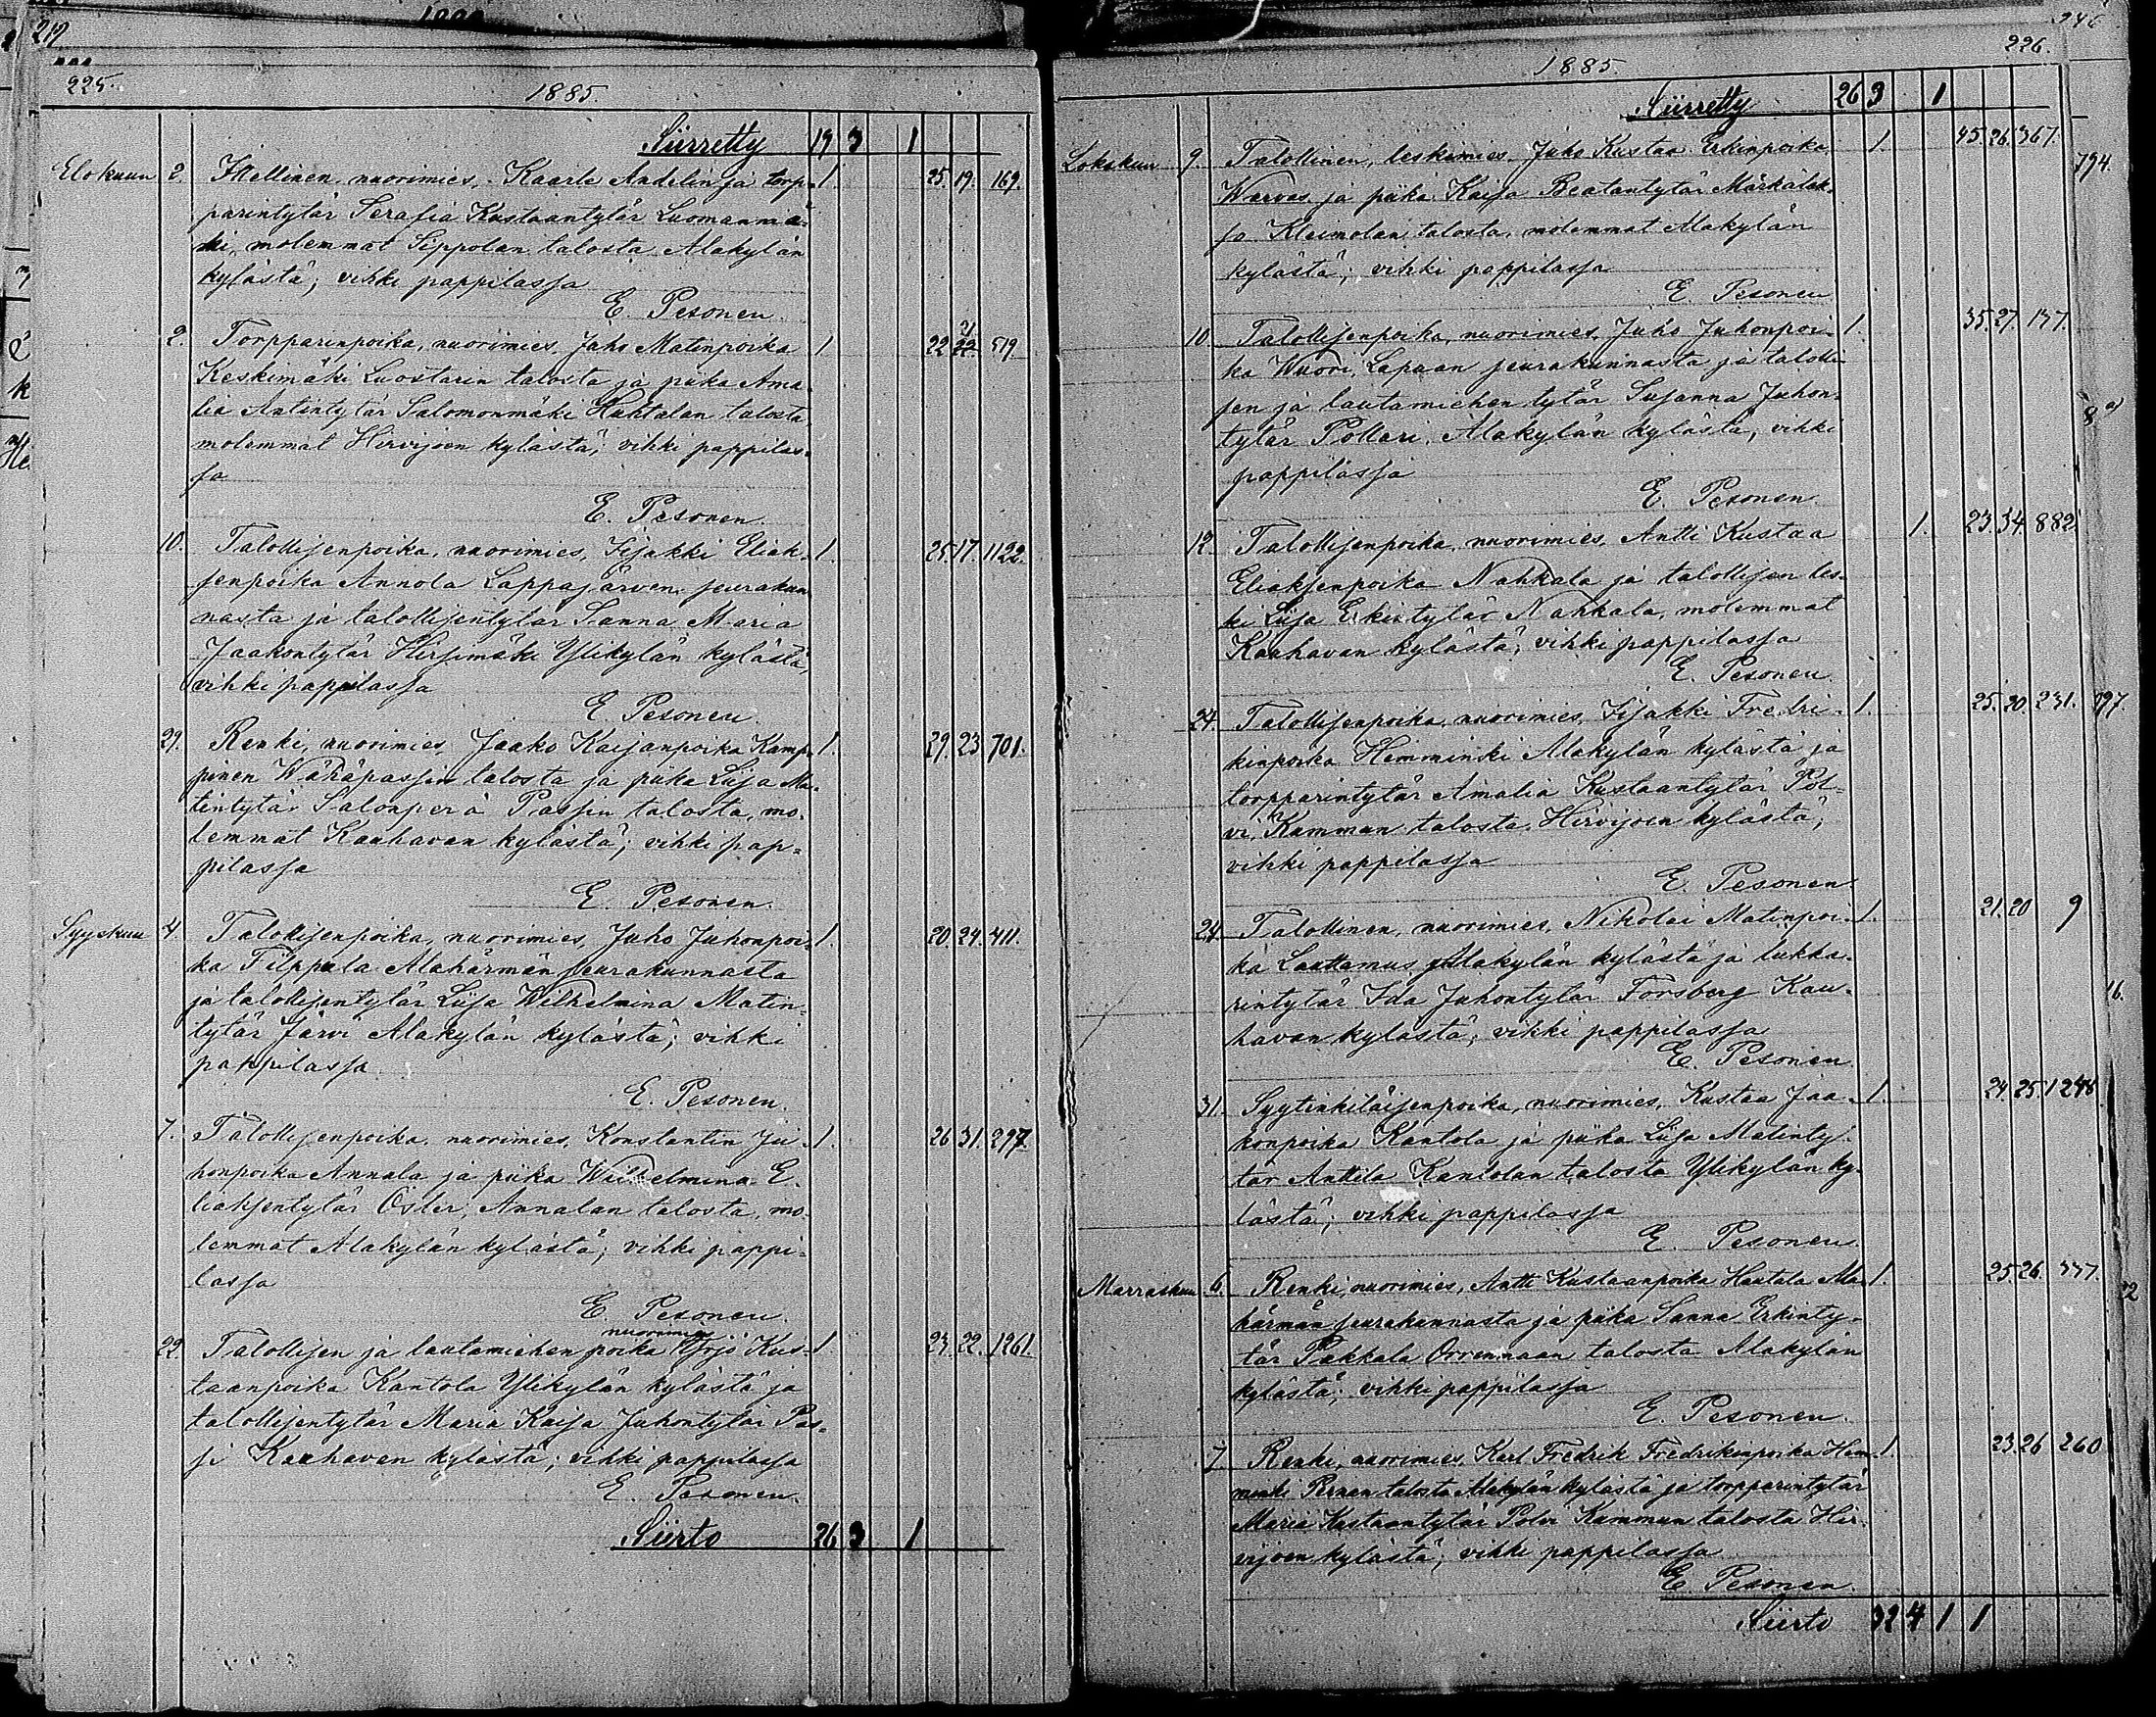 219
225.
1885.
Siirretty 19 3 1
Elokuun 2. Itsellinen nuorimies, Kaarle Andelin ja torp- 1. 25. 19. 169.
parintytär Serafia Kustaantytär Luomanmä-
ki, molemmat Sippolan talosta Alakylän
kylästä; vihki pappilassa
E. Pesonen.
2. Torpparinpoika, nuorimies, Juho Matinpoika 1 22 21 22 519.
Keskimäki Luostarin talosta ja piika Ama-
lia Antintytär Salomonmäki Huhtalan talosta,
molemmat Hirvijoen kylästä; vihki pappilas-
sa
E. Pesonen.
10. Talollisenpoika, nuorimies, Iisakki Eliak- 1. 25. 17. 1122.
senpoika Annola Lappajärven seurakun-
nasta ja talollisentytär Sanna Maria
Jaakontytär Hirsimäki Ylikylän kylästä,
vihki pappilassa
E. Pesonen.
29. Renki, nuorimies Jaako Kaijanpoika Kamp- 1. 29. 23 701.
pinen Wähäpassin talosta ja piika Liisa Ma-
tintytär Salonperä Passin talosta, mo-
lemmat Kauhavan kylästä; vihki pap-
pilassa
E. Pesonen.
Syyskuu 4. Talollisenpoika, nuorimies, Juho Juhonpoi- 1. 20. 24. 411.
ka Filppula Alahärmän seurakunnasta
ja talollisentytär Liisa Wilhelmina Matin-
tytär Järvi Alakylän kylästä; vihki
pappilassa
E. Pesonen.
7. Talollisenpoika, nuorimies, Konstantin Ju- 1. 26. 31. 297.
honpoika Annala ja piika Wilhelmina E-
liaksentytär Öster, Annalan talosta, mo-
lemmat Alakylän kylästä; vihki pappi-
lassa
E. Pesonen.
nuorimies
22. Talollisen ja lautamiehen poika Yrjö Kus- 1. 23. 22. 1261.
taanpoika Kantola Ylikylän kylästä ja
talollisentytär Maria Kaisa Juhontytär Pas-
si Kauhavan kylästä; vihki pappilassa
E. Pesonen.
Siirto 26 3 1
226.
1885.
Siirretty 26 3 1
Lokakuun 9. Talollinen, leskimies Juho Kustaa Erkinpoika 1. 45. 26. 367.
Warvas ja piika Kaisa Beatantytär
Kleimolan talosta, molemmat Alakylän
kylästä; vihki pappilassa
E. Pesonen
10 Talollisenpoika, nuorimies, Juho Juhonpoi- 1. 35. 27. 137.
ka Wuori, Lapuan seurakunnasta ja talolli-
sen ja lautamiehen tytär Susanna Juhon-
tytär Pollari, Alakylän kylästä; vihki
pappilassa
E. Pesonen
12. Talollisenpoika, nuorimies, Antti Kustaa 1. 23. 34. 882.
Eliaksenpoika Nahkala ja talollisen les-
ki Liisa Erkintytär Nahkala, molemmat
Kauhavan kylästä; vihki pappilassa
E. Pesonen.
24. Talollisenpoika, nuorimies, Iisakki Fredri- 1. 25. 20. 231.
kinpoika Hemminki Alakylän kylästä ja
torpparintytär Amalia Kustaantytär Pol-
vi, Kamman talosta, Hirvijoen kylästä;
vihki pappilassa
E. Pesonen.
24. Talollinen, nuorimies, Nikolai Matinpoi- 1. 21. 20 9
ka Lauttamus Alakylän kylästä ja lukka-
rintytär Ida Juhontytär Forsberg Kau-
havan kylästä; vihki pappilassa
E. Pesonen
31. Syytinkiläisenpoika, nuorimies, Kustaa Jaa- 1. 24. 25. 1248.
konpoika Kantola ja piika Liisa Matinty-
tär Anttila Kantolan talosta Ylikylän ky-
lästä; vihki pappilassa
E. Pesonen
Marraskuu 6. Renki, nuorimies, Antti Kustaanpoika Hautala Ala- 1. 25. 26. 337.
härmän seurakunnasta ja piika Sanna Erkinty-
tär Pukkala Orrenmaan talosta Alakylän
kylästä; vihki pappilassa
E. Pesonen.
7 Renki, nuorimies, Karl Fredrik Fredrikinpoika Hem- 1. 23. 26 260
minki Pernen talosta Alakylän kylästä ja torpparintytär
Maria Kustaantytär Polvi Kamman talosta Hir-
vijoen kylästä; vihki pappilassa
E. Pesonen
Siirto 32 4 1 1